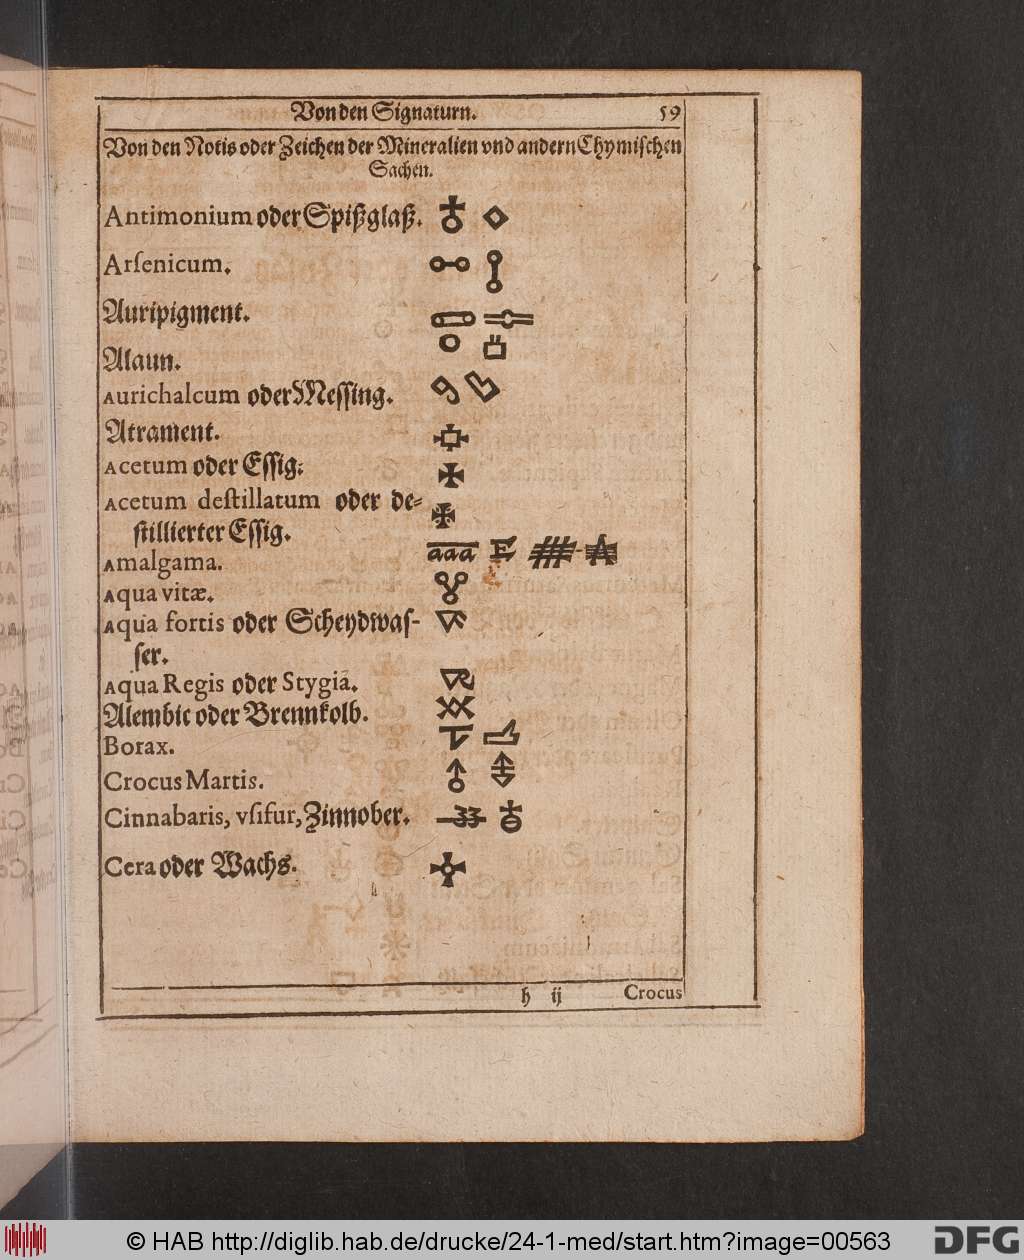 Von den Signaturn. 59
Von den Notis oder Zeichen der Mineralien vnd andern Chymischen
Sachen.
Antimonium oder Spißglaß.
Arſenicum.
Auripigment.
Alaun.
Aurichalcum oder Meſſing.
Atrament.
Acetum oder Eſſig.
Acetum deſtillatum oder de⸗
ſtillierter Eſſig.
Amalgama. aaa
Aqua vitæ.
Aqua fortis oder Scheydwaſ-
ſer.
Aqua Regis oder Stygia.
Alembic oder Brennkolb.
Borax.
Crocus Martis.
Cinnabaris, vſifur, Zinnober.
Cera oder Wachs.
h ij Crocus
© HAB http://diglib.hab.de/drucke/24-1-med/start.htm?image=00563
DFG